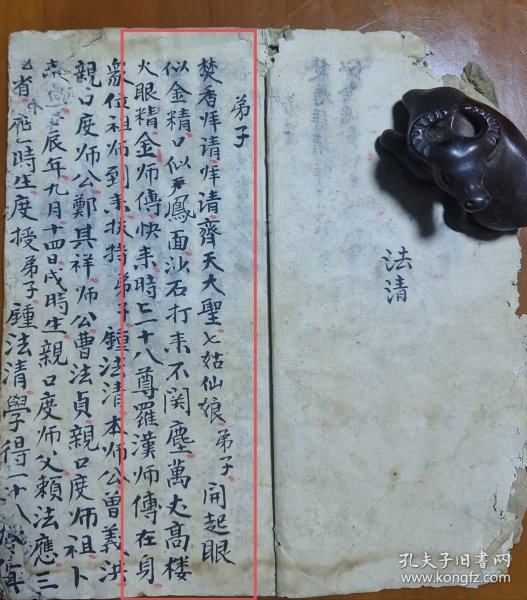 法清
弟子
焚香拜請拜請齊天大聖七姑仙娘弟子開起眼
似金精口似鳳面沙石打来不関塵萬丈高楼
火眼精金師傅快来時二十八尊羅漢師傅在身
衆位祖師到来扶持弟子鍾法清本師公曾義洪
親口度師公鄭其祥師公曹法貞親口度師祖卜
辰年九月十四日戌時生親口度師父賴法應三
時生度授弟子鍾法清學得一十八
孔夫子旧书网
www.kongfz.com